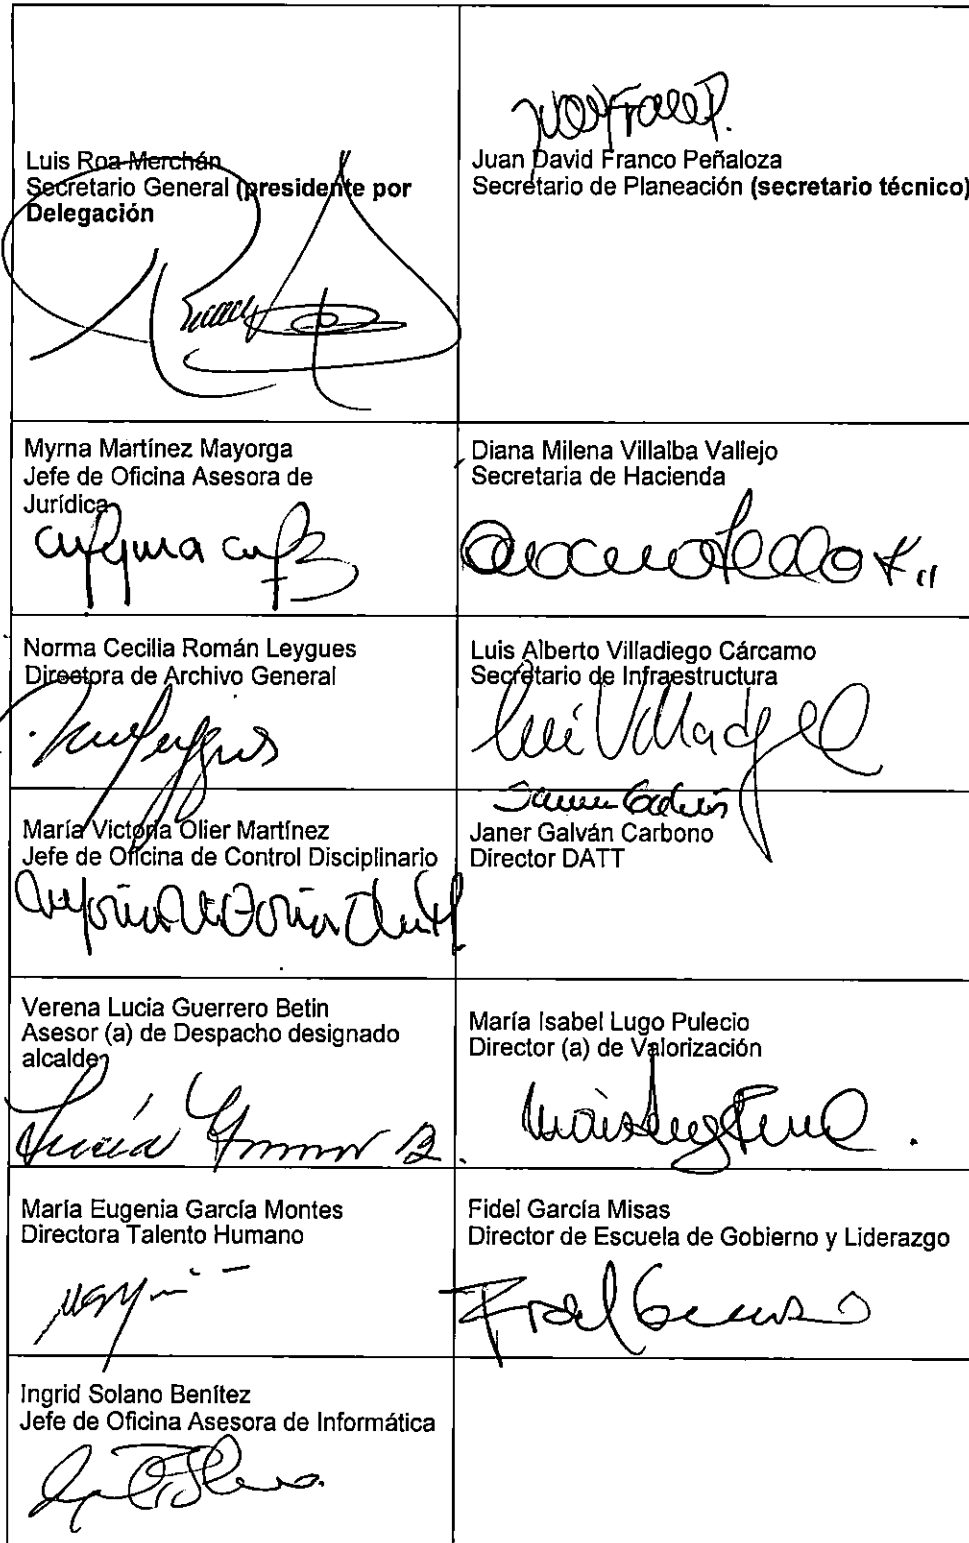 Luis Roa Merchán
Secretario General (presidente por
Delegación
Juan David Franco Peñaloza
Secretario de Planeación (secretario técnico)
Myrna Martínez Mayorga
Jefe de Oficina Asesora de
Jurídica
Diana Milena Villalba Vallejo
Secretaria de Hacienda
Norma Cecilia Román Leygues
Directora de Archivo General
Luis Alberto Villadiego Cárcamo
Secretario de Infraestructura
María Victoria Olier Martínez
Jefe de Oficina de Control Disciplinario
Janer Galván Carbono
Director DATT
Verena Lucia Guerrero Betin
Asesor (a) de Despacho designado
alcalde
María Isabel Lugo Pulecio
Director (a) de Valorización
María Eugenia García Montes
Directora Talento Humano
Fidel García Misas
Director de Escuela de Gobierno y Liderazgo
Ingrid Solano Benítez
Jefe de Oficina Asesora de Informática